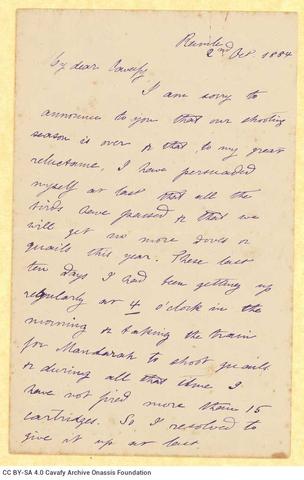 Ramleh
2nd Oct 1884
My dear Cavafy
I am sorry to
announce to you that our shooting
season is over & that, to my great
reluctance, I have persuaded
myself at last that all the
birds have passed & that we
will get no more doves or
quails this year. These last
ten days I had been getting up
regularly at 4 o'clock in the
morning & taking the train
for Mandarah to shoot quails
& during all that time I
have not fired more than 15
cartridges. So I resolved to
give it up at last
CC BY-SA 4.0 Cavafy Archive Onassis Foundation